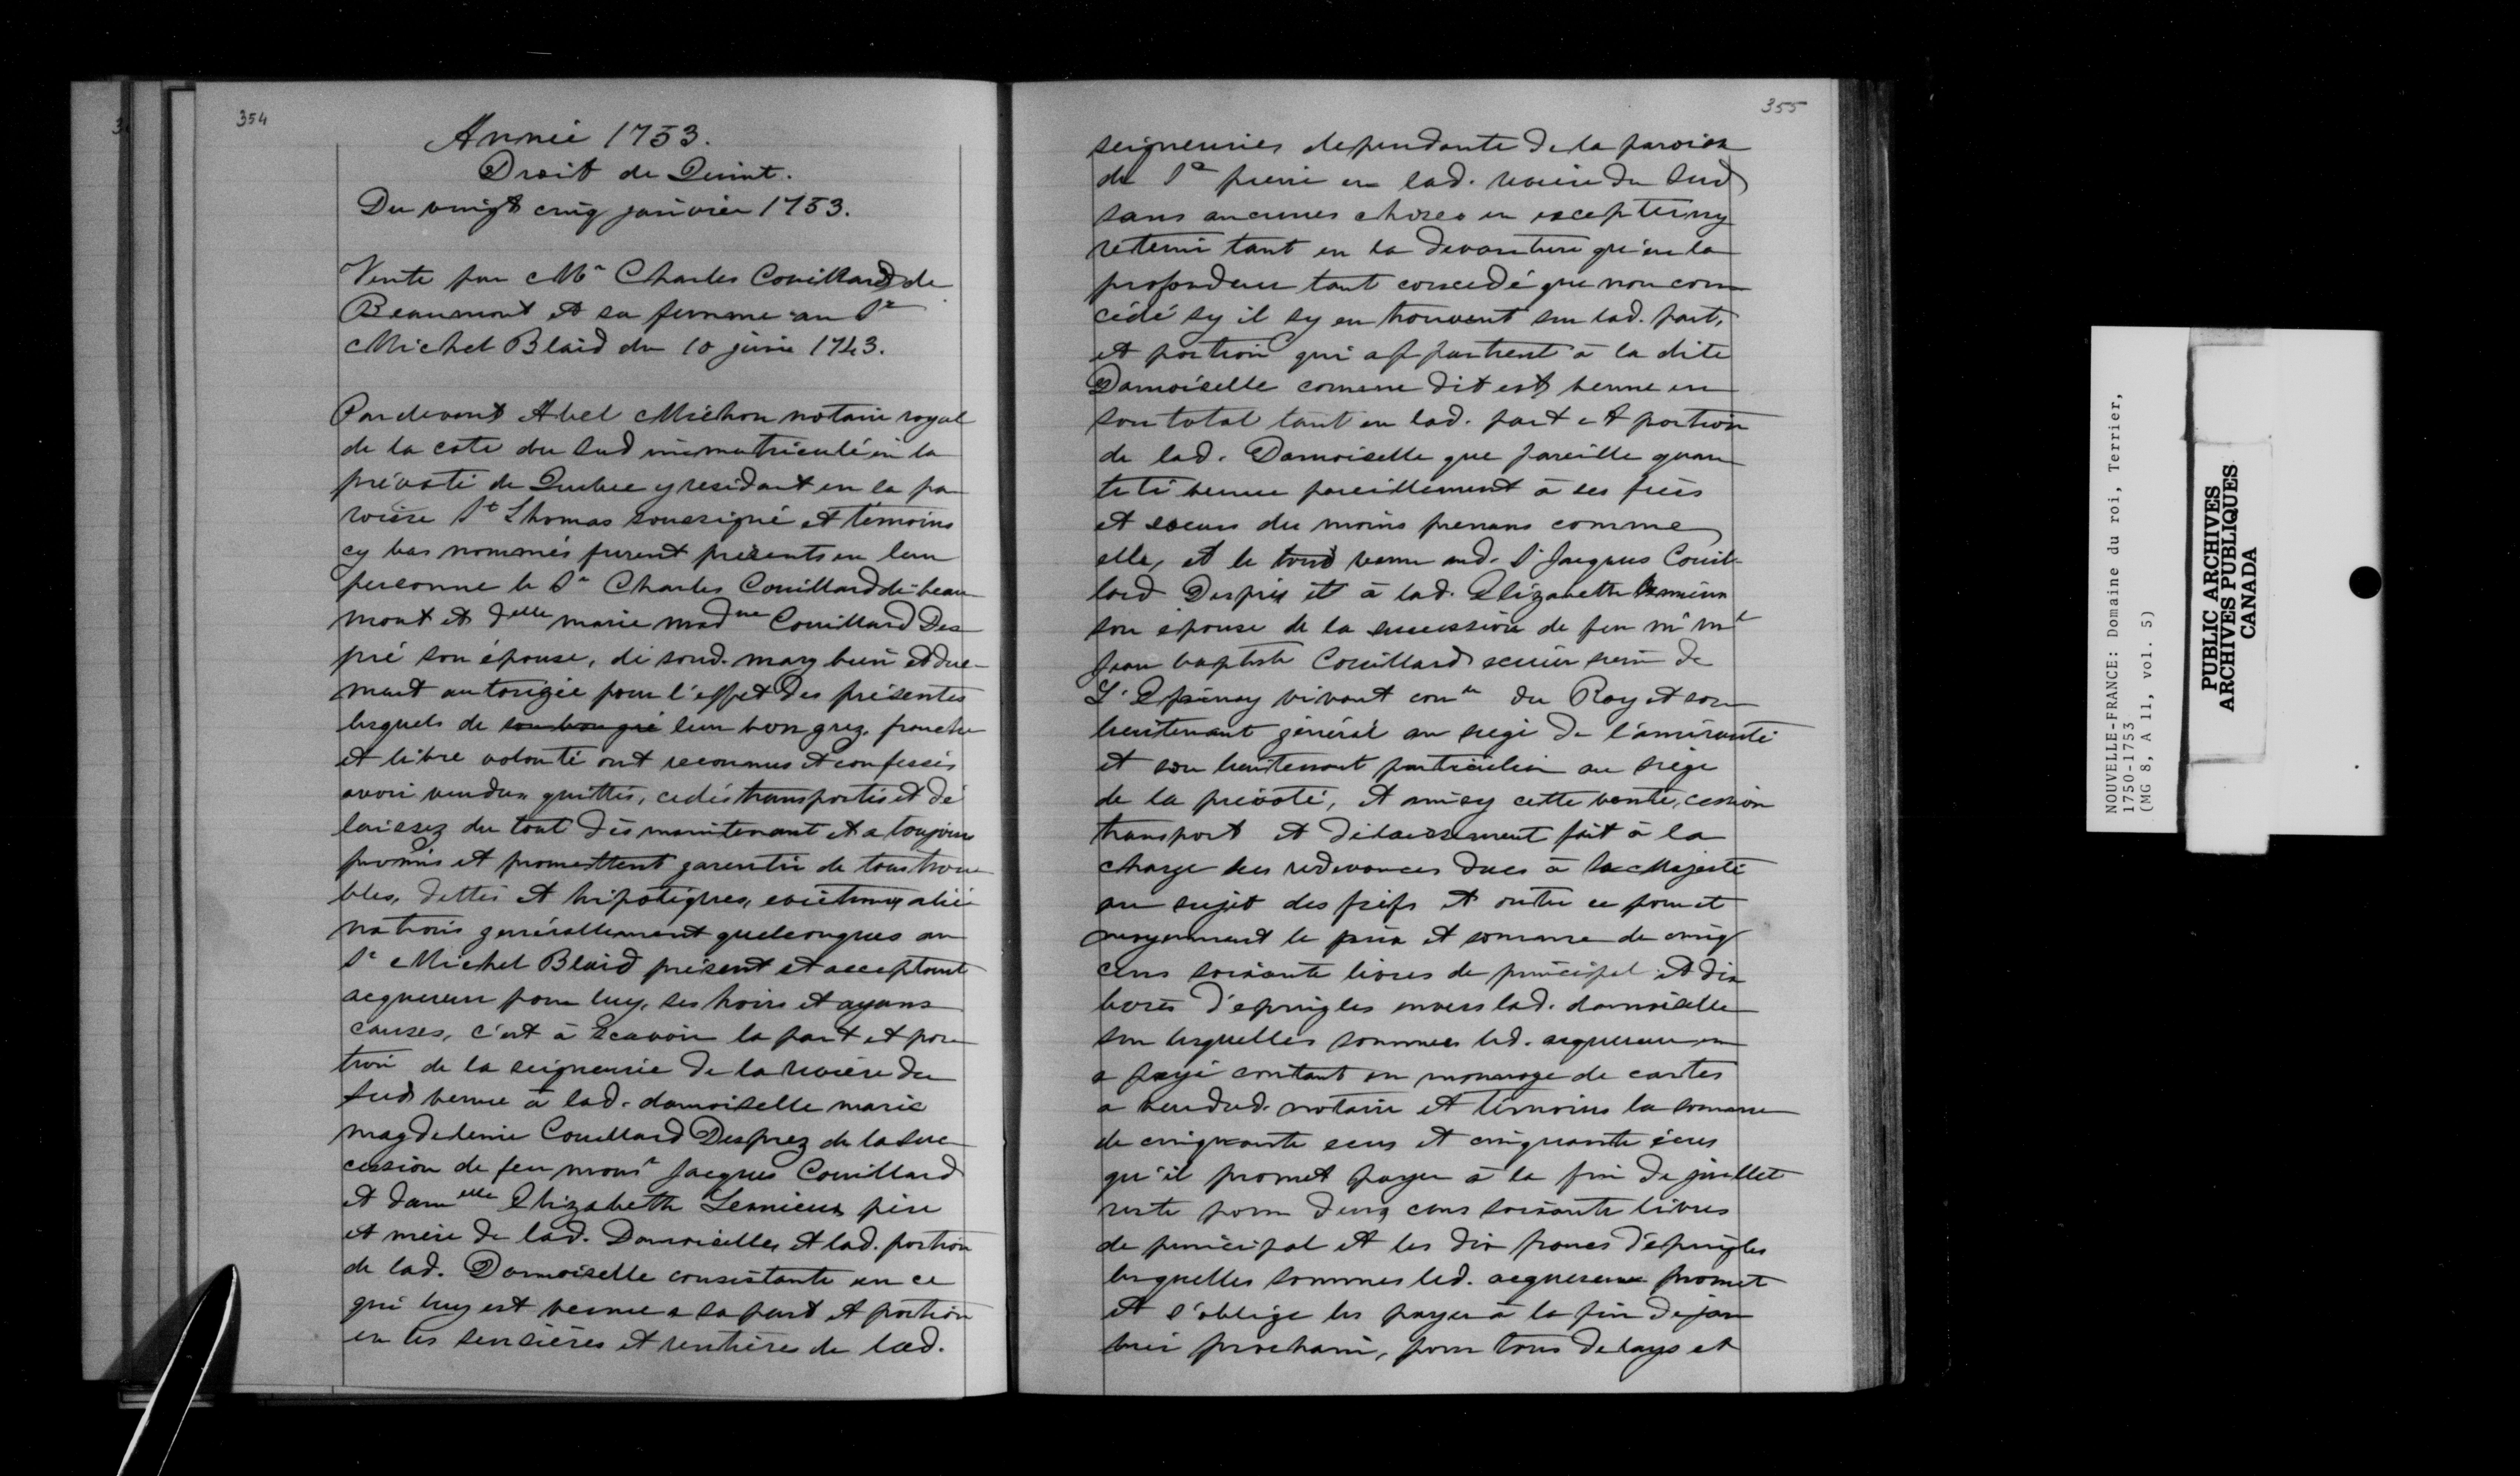 354
Année 1753.
Droit de Quint.
Du vingt cinq janvier 1753.
Vente par Mr Charles Couillard de
Beaumont et sa femme au Sr
Michel Blaid du 10 juin 1743.
Par devant Abel Michon notaire royal
de la cote du Sud immatriculé en la
prévosté de Quebec y residant en la pa
roisse St Thomas soussigné et témoins
cy bas nommés furent présents en leur
personne le Sr Charles Couillard de beau
mont et delle marie madne Couillard Des
pré son épouse, de sond. mary bien et due
ment autorigée pour l'effet des présentes
lesquels de son bon gré leur bon grez, franche
et libre volonté ont reconnus et confessés
avoir vendus quittés, cedés transportés et dé
laissez du tout dès maintenant et a toujours
promis et promettent garentir de tous trou
bles, dettes et hipotèques, evictions, alié
nations generallement quelconques au
Sr Michel Blaid présent et acceptant
acquereur pour luy, ses hoirs et ayans
causes, c'est à scavoir la part et por
tion de la seigneurie de la riviere du
Sud venue à lad. damoiselle marie
magdeleine Couillard Desprez de la suc
cession de feu monsr Jacques Couillard
et damelle Elizabeth Lemieux père
et mère de lad. Damoiselle, et lad. portion
de lad. Damoiselle consistante en ce
qui luy est venue a sa part et portion
en les sensières et rentières de lad.
355
seigneuries dependante de la paroisse
de St pierre en lad. riviere du Sud
sans aucunes choses en excepter ny
retenir tant en la devanture qu'en la
profondeur tant concedé que non con
cédé sy il sy en trouvent sur lad. part,
et portion qui appartient à la dite
Damoiselle comme dit est, venue en
son total tant en lad. part et portion
de lad. Damoiselle que pareille quan
tité venue pareillement à ses frères
et soeurs du moins prenans comme
elle, et le tout venu aud. Sr Jacques Couil
lard Després et à lad. Elizabeth Lemieux
son épouse de la succession de feu mr me
Jean baptiste Couillard ecuier sieur de
L'Epinay vivant coner du Roy et son
lieutenant général au siege de l'amirauté
et son lieutenant particulier au siège
de la prévoté, et ainsy cette vente, cession
transport et délaissement fait à la
charge des redevances dues à Sa Majesté
au sujet des fiefs et outre ce pour et
moyennant le prix et somme de cinq
cens soixante livres de principal et dix
livres d'epingles envers lad. damoiselle
sur lesquelles sommes led. acquereur en
a payé contant en monnoye de cartes
a veu dud. notaire et témoins la somme
de cinquante ecus et cinquante écus
qu'il promet payer à la fin de juillet
reste pour deux cens soixante livres
de principal et les dix francs d'épingles
lesquelles sommes led. acquereur promet
et s'oblige les payer à la fin de jan
vier prochain, pour tous delays et
NOUVELLE-FRANCE: Domaine du roi, Terrier,
1750-1753
(MG 8, A 11, vol. 5)
PUBLIC ARCHIVES
ARCHIVES PUBLIQUES
CANADA